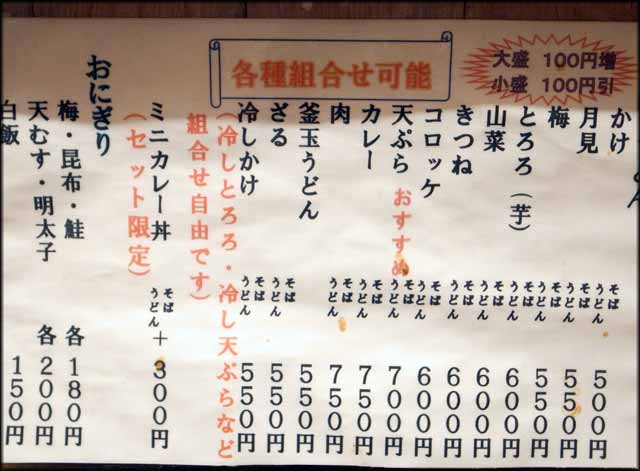 大盛 100円増
小盛 100円引
各種組合せ可能
かけ そば うどん 500円
月見 そば うどん 550円
梅 そば うどん 550円
とろろ（芋） そば うどん 600円
山菜 そば うどん 600円
きつね そば うどん 600円
コロッケ そば うどん 600円
天ぷら おすすめ そば うどん 700円
カレー そば うどん 750円
肉 そば うどん 750円
釜玉うどん
ざる そば うどん 550円
冷しかけ そば うどん 550円
（冷しとろろ・冷し天ぷらなど
組合せ自由です）
ミニカレー丼 そば うどん ＋300円
（セット限定）
おにぎり
梅・昆布・鮭 各180円
天むす・明太子 各200円
白飯 150円